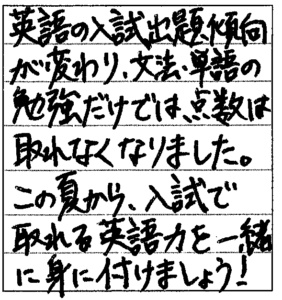 英語の入試出題傾向
が変わり、文法・単語の
勉強だけでは、点数は
取れなくなりました。
この夏から、入試で
取れる英語力を一緒
に身に付けましょう!